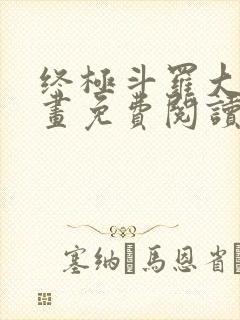 终極斗羅大
畫免費閱讀
塞纳馬恩省